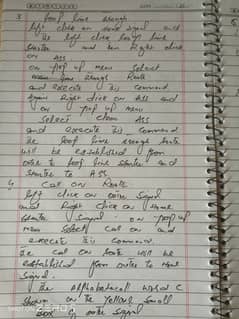 3 Loop Line through
left click on outer signal and
the left click loop line
starter and then Right click
on
ASS
on pop up menu select
Line through Route
and execute this command
again Right click on ASS and
on pop up menu
Select Clear Ass
and execute this command
the Loop line through route
will be established from
outer to loop line starter and
starter to ASS.
4 Call on Route
left click on outer signal
and Right click on Home
signal on pop up
menu select call on and
execute this command.
The call on Route will be
established from outer to Home
signal.
The Alphabetical word C
shown on the yellow small
box of outer signal